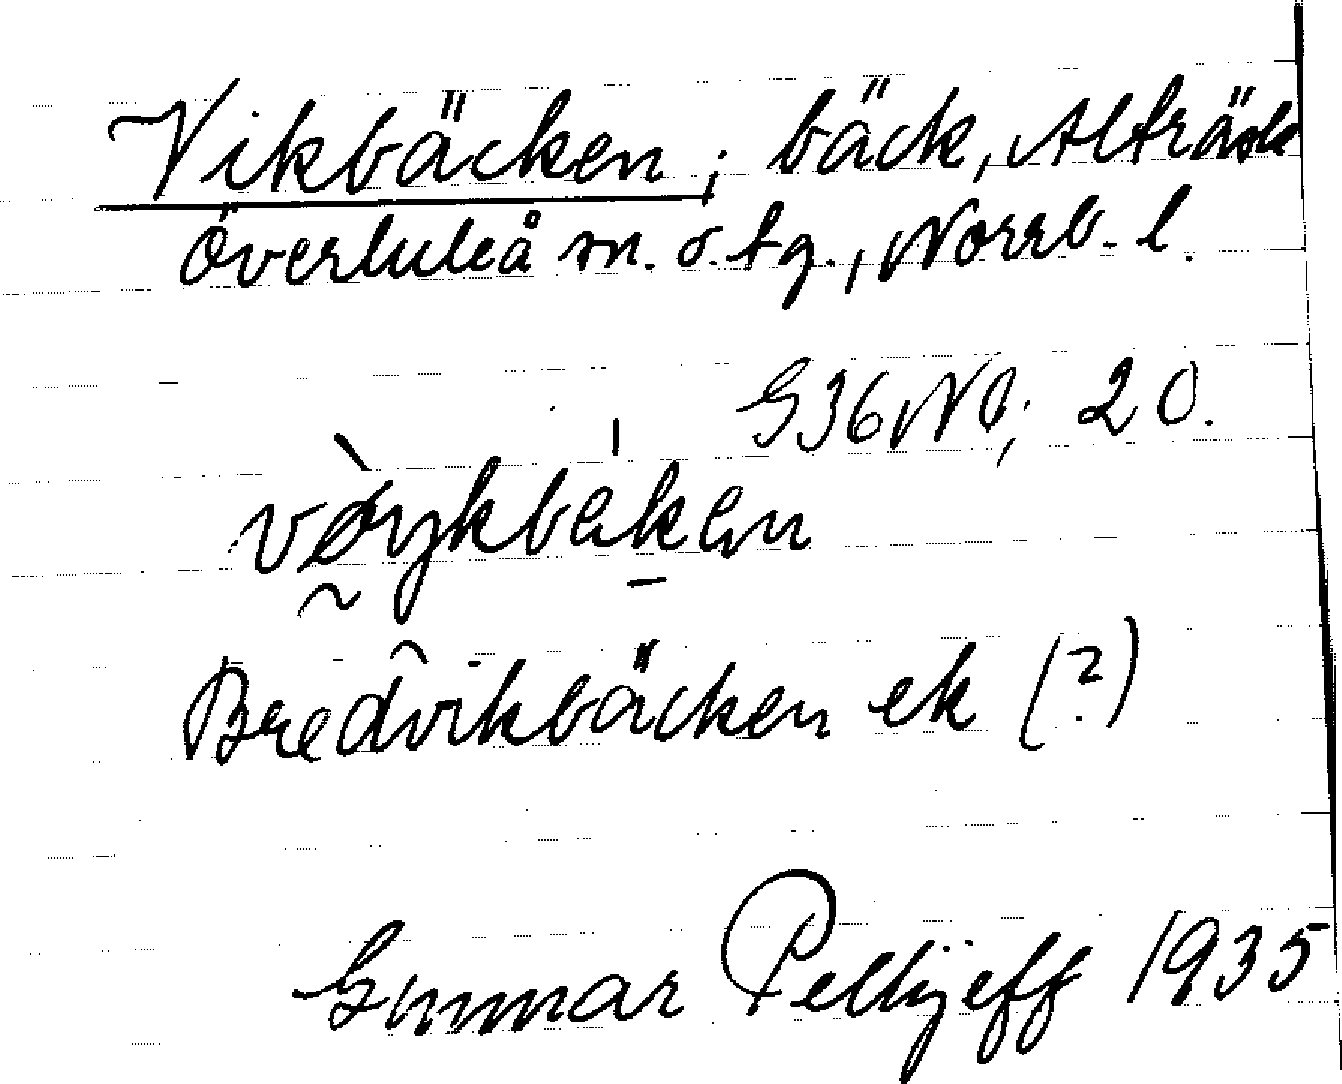 Vikbäcken; bäck, Alträsk
Överluleå sn. o. tg., Norrb. l.
G36NO; 20.
Bredvikbäcken ek (?)
Gunnar Pellijeff 1935